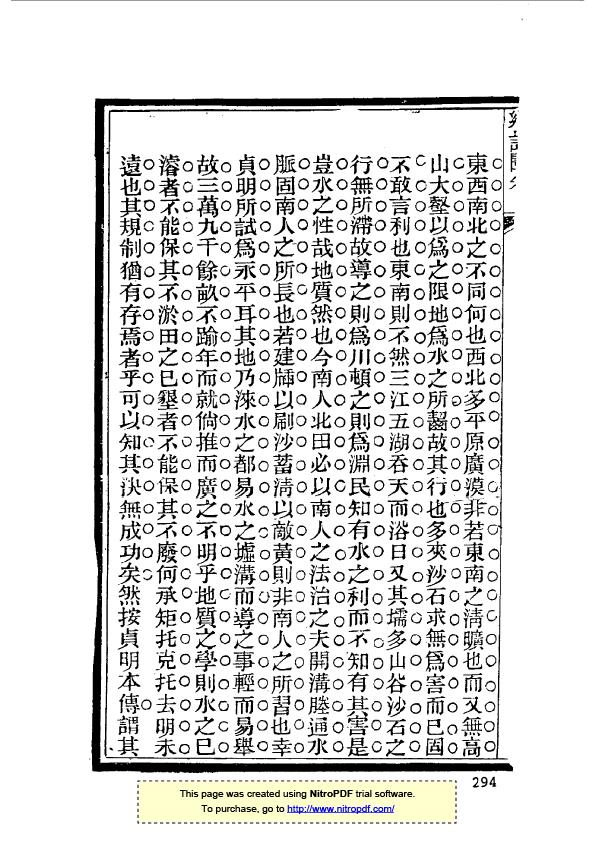 東西南北之不同何也西北多平原廣漠非若東南之清曠也而又無高
山大壑以爲之限地爲水之所齧故其行也多夾沙石求無爲害而已固
不敢言利也東南則不然三江五湖吞天而浴日又其壖多山谷沙石之
行無所滯故導之則爲川頓之則爲淵民知有水之利而不知有其害是
豈水之性哉地質然也今南人北田必以南人之法治之夫開溝塍通水
脈固南人之所長也若建牐以刷沙蓄清以敵黃則非南人之所習也幸
貞明所試爲永平耳其地乃淶水之都易水之墟溝而導之事輕而易舉
故三萬九千餘畝不踰年而就倘推而廣之不明乎地質之學則水之已
濬者不能保其不淤田之已墾者不能保其不廢何承矩托克托去明未
遠也其規制猶有存焉者乎可以知其決無成功矣然按貞明本傳謂其
294
This page was created using NitroPDF trial software.
To purchase, go to http://www.nitropdf.com/